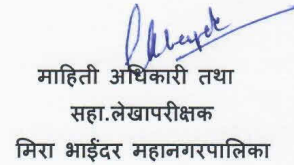 माहिती अधिकारी तथा
सहा.लेखापरीक्षक
मिरा भाईंदर महानगरपालिका